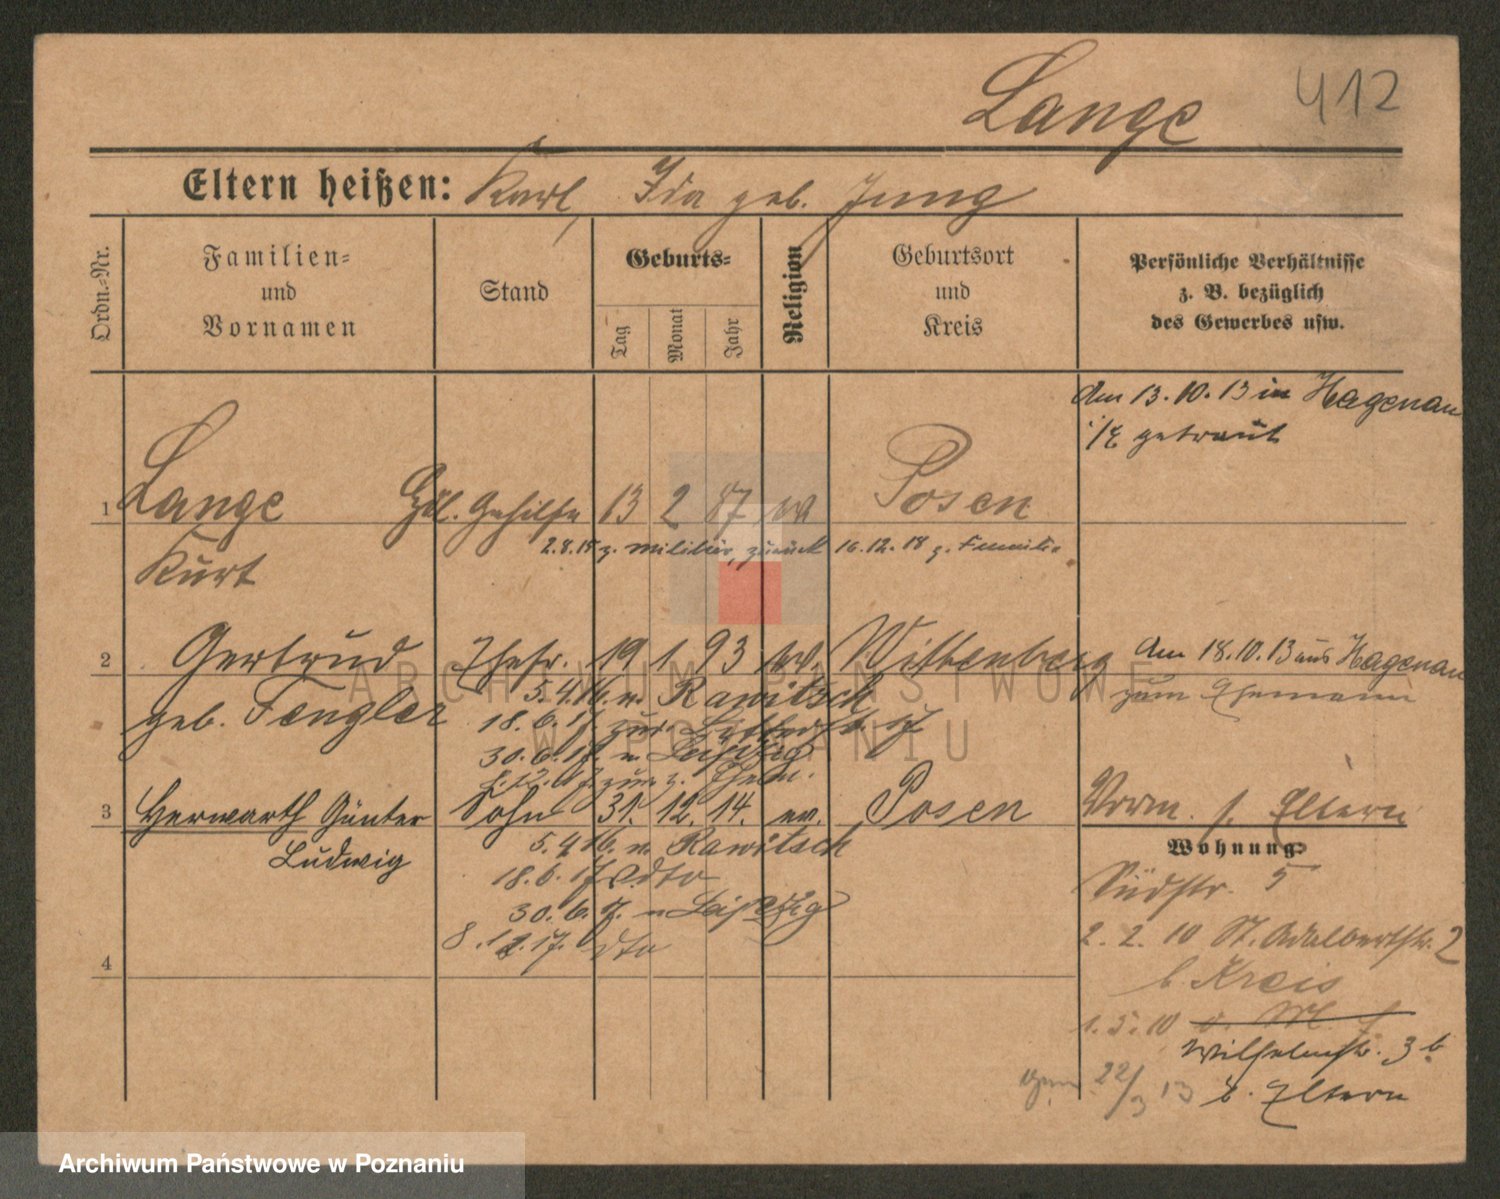 Lange 412
Eltern heißen: Karl, Ida geb. Jung
Ordn.-Nr.
Familien-
und
Vornamen
Stand
Geburts-
Tag
Monat
Jahr
Religion
Geburtsort
und
Kreis
Persönliche Verhältnisse
z. B. bezüglich
des Gewerbes usw.
Am 13.10.13 in Hagenau
i/E getraut
1 Lange Hdl. Gehilfe 13 2 87 ev Posen
2.8.15 z. Militär, zurück 16.12.18 z. Familie
Kurt
2 Gertrud Ehefr. 19 1 93 ev. Wittenberg
Am 18.10.13 aus Hagenau
zum Ehemann
geb. Fengler
5.4.16. n. Rawitsch
18.6.17 zur. 17
30.6.17. n. Leipzig
zur. z. Ehem.
3 Herwarth Günter Sohn 31. 12. 14. ev. Posen
Ludwig
5.4.16. n. Rawitsch
18.6.17 dto
30.6.17. n Leipzig
8.12.17. dto
4
Vorm. s. Eltern
Wohnung:
Südstr. 5
2.2.10 St. Adalbertstr. 2
b. Kreis
1.5.10
Wilhelmstr. 3b
b. Eltern
22/3 13
ARCHIWUM PAŃSTWOWE
W POZNANIU
Archiwum Państwowe w Poznaniu